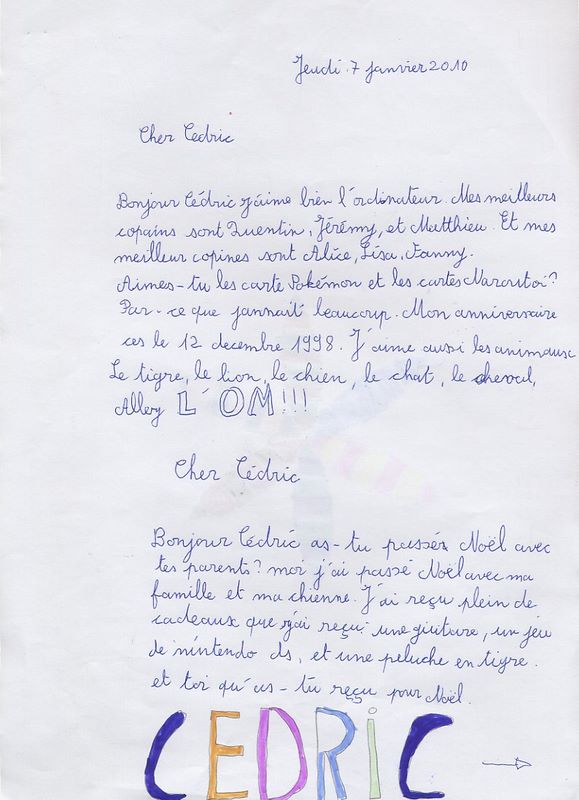 Jeudi 7 janvier 2010
Cher Cédric
Bonjour Cédric j'aime bien l'ordinateur. Mes meilleurs
copains sont Quentin, Jérémy, et Matthieu. Et mes
meilleur copines sont Alice, Lisa, Fanny.
Aimes-tu les carte Pokémon et les cartes Narorutoi?
Par-ce que jannait beaucoup. Mon anniversaire
ces le 12 decembre 1998. J'aime aussi les animaux
Le tigre, le lion, le chien, le chat, le cheval,
Alley L'OM!!!
Cher Cédric
Bonjour Cédric as-tu passér Noël avec
tes parents? moi j'ai passé Noël avec ma
famille et ma chienne. J'ai reçu plein de
cadeaux que j'ai reçu: une giutare, un jeu
de nintendo ds, et une peluche en tigre.
et toi qu'as-tu reçu pour Noël.
CEDRiC